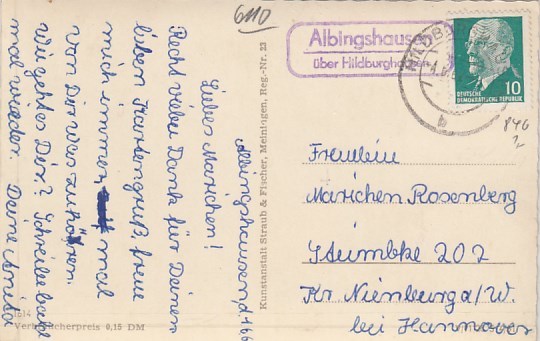 6110
Albingshausen
über Hildburghausen
HILDB
10
DEUTSCHE
DEMOKRATISCHE REPUBLIK
846
Albingshausen, d.
Liebes Mariechen!
Recht vielen Dank für Deinen
lieben Kartengruß, freue
mich immer, mal
von Dir was zu hören.
Wie geht es Dir? Schreibe bald
mal wieder. Deine
Kunstanstalt Straub & Fischer, Meiningen, Reg.-Nr. 23
Verbraucherpreis 0,15 DM
Fräulein
Mariechen Rosenberg
Steimbke 202
Kr Nienburg a/W.
bei Hannover